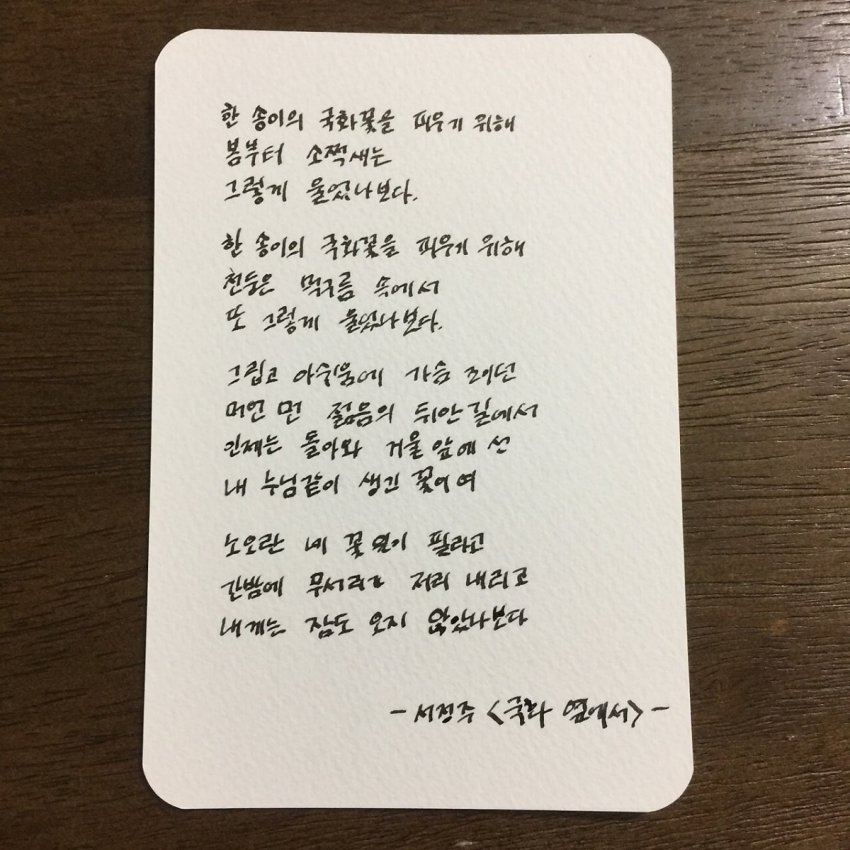 한 송이의 국화꽃을 피우기 위해
봄부터 소쩍새는
그렇게 울었나보다.
한 송이의 국화꽃을 피우기 위해
천둥은 먹구름 속에서
또 그렇게 울었나보다.
그립고 아쉬움에 가슴 조이던
머언 먼 젊음의 뒤안길에서
인제는 돌아와 거울 앞에 선
내 누님같이 생긴 꽃이여
노오란 네 꽃잎이 필라고
간밤에 무서리가 저리 내리고
내게는 잠도 오지 않았나보다
- 서정주 <국화 옆에서> -